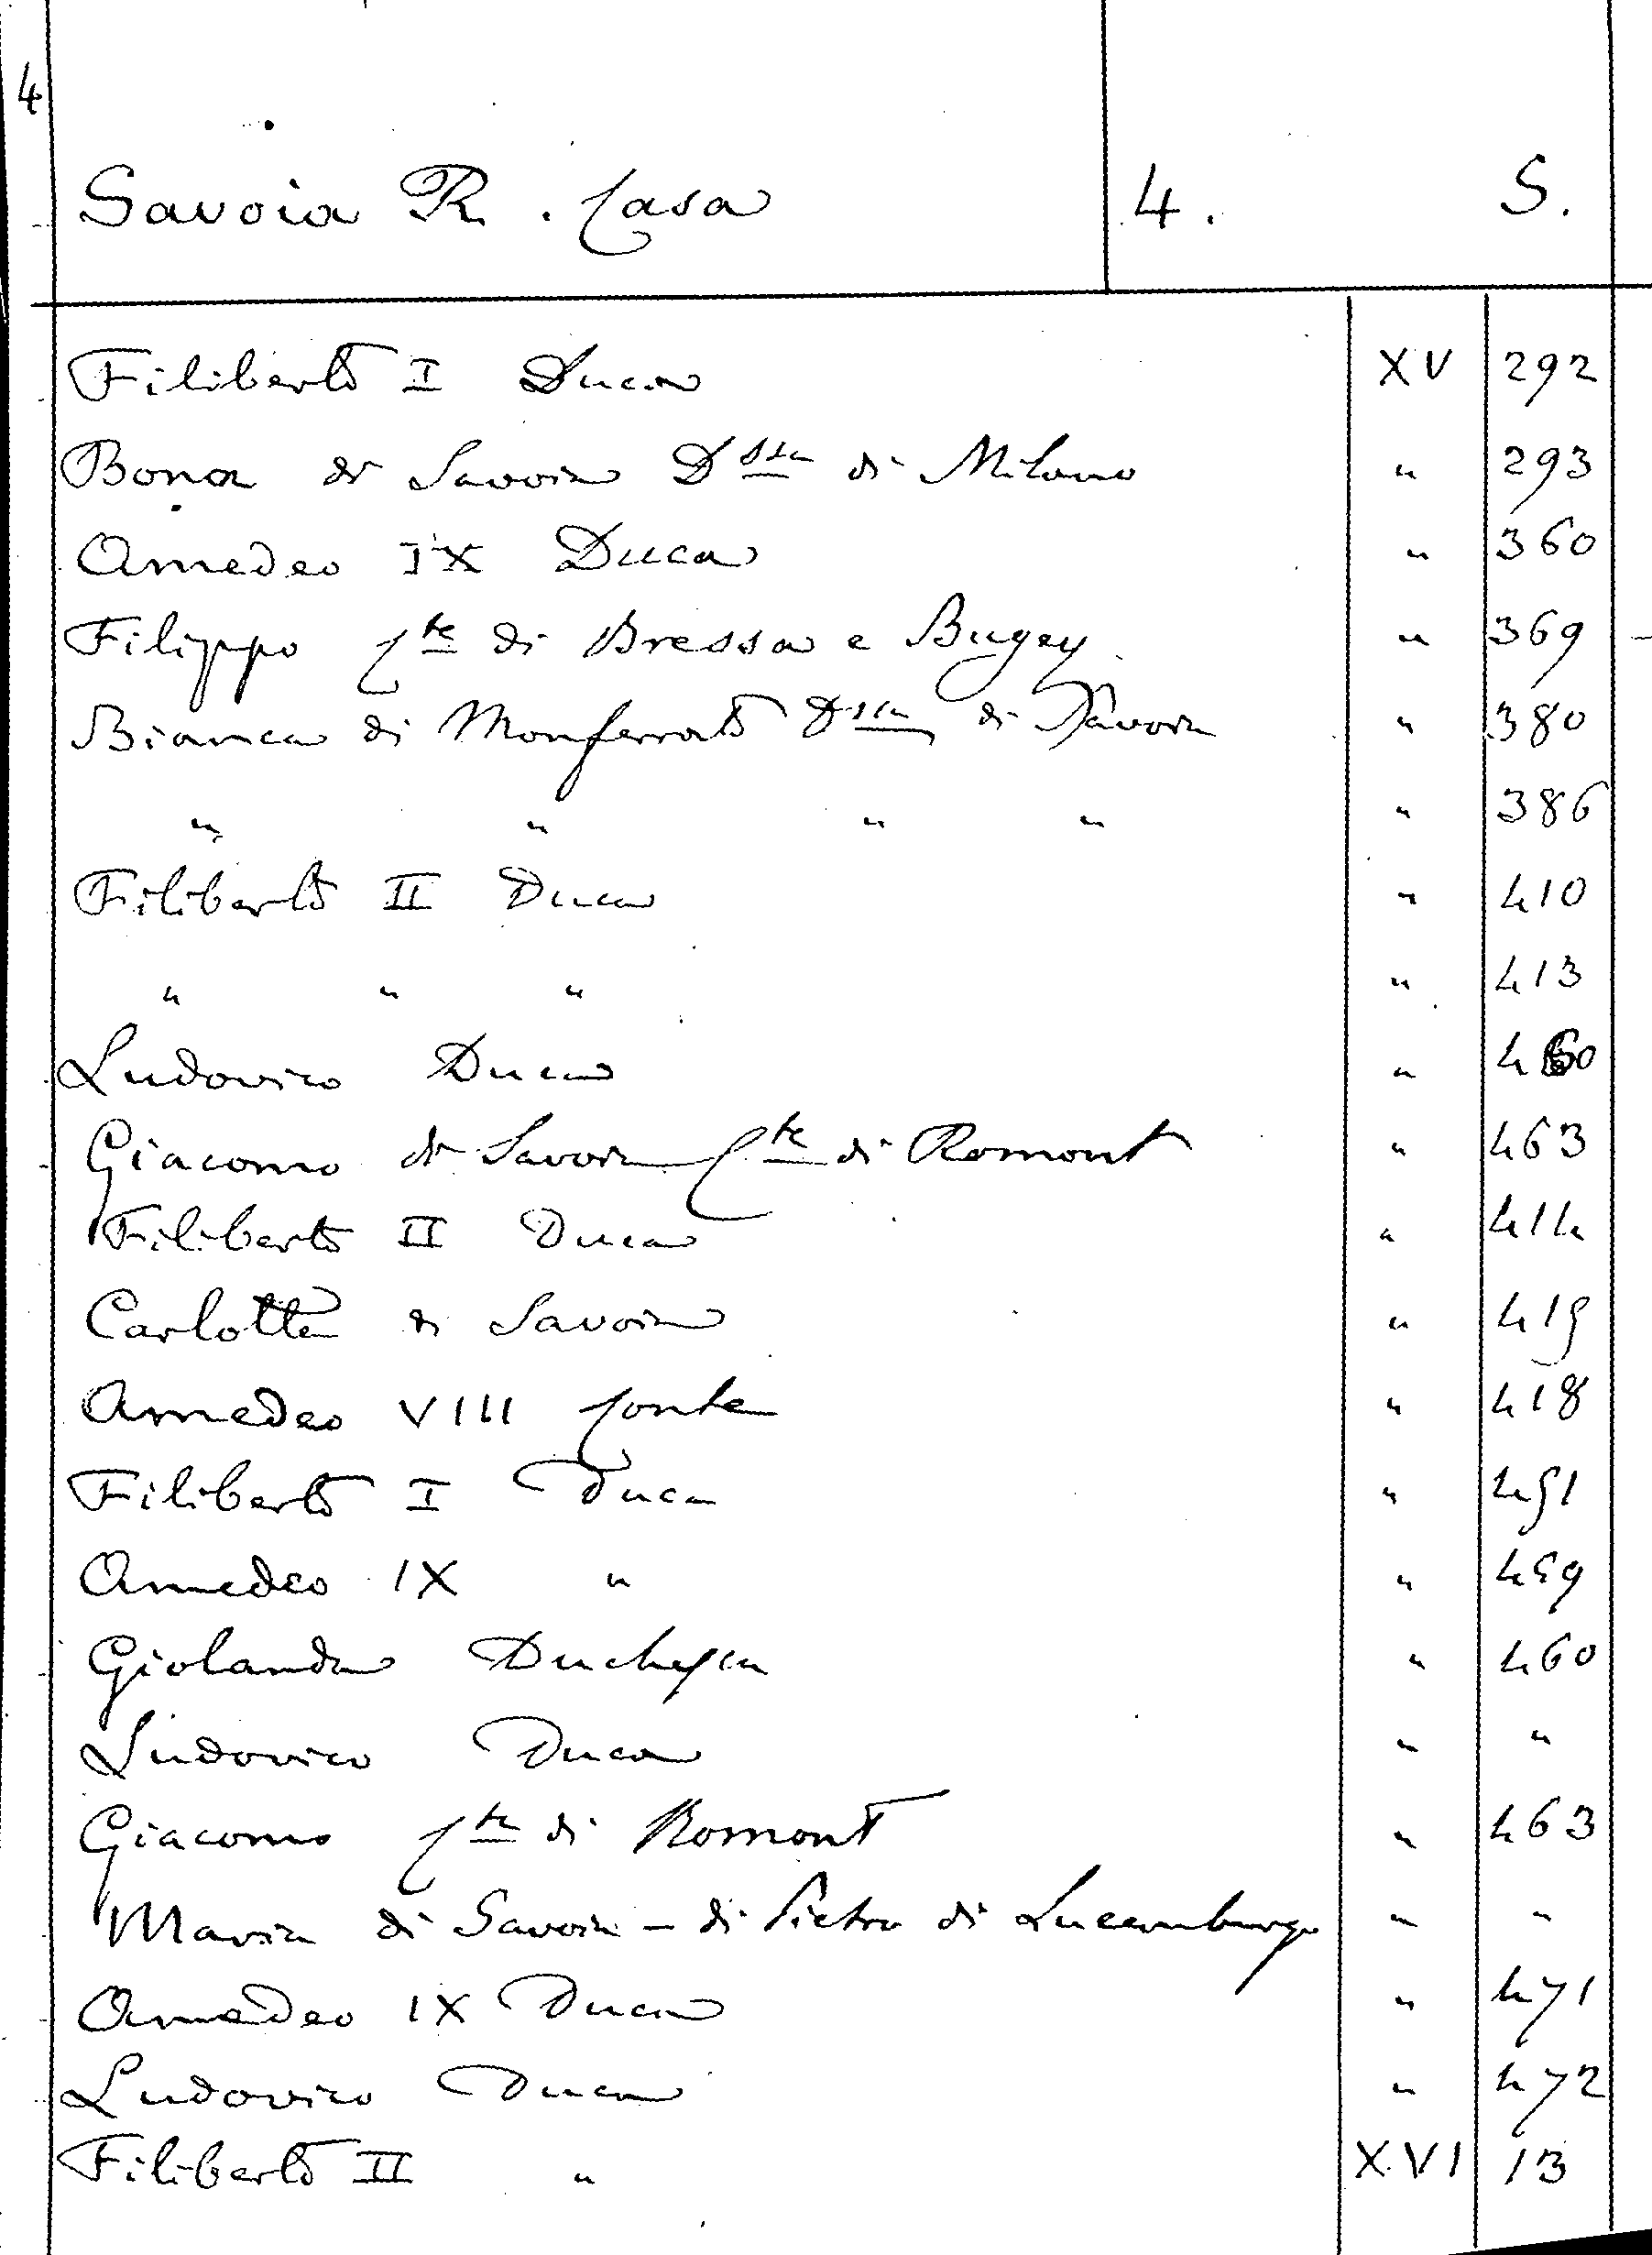 4
Savoia R. Casa 4. S.
Filiberto I Duca XV 292
Bona di Savoia Dssa di Milano " 293
Amedeo IX Duca " 360
Filippo Cte di Bressa e Bugey " 369
Bianca di Monferrato Dssa di Savoia " 380
" " " " " 386
Filiberto II Duca " 410
" " " " 413
Ludovico Duca " 460
Giacomo di Savoia Cte di Romont " 463
Filiberto II Duca " 414
Carlotta di Savoia " 415
Amedeo VIII Conte " 418
Filiberto I Duca " 451
Amedeo IX " " 459
Giolanda Duchessa " 460
Ludovico Duca " "
Giacomo Cte di Romont " 463
Maria di Savoia - di Pietro di Lucemburgo " "
Amedeo IX Duca " 471
Ludovico Duca " 472
Filiberto II " XVI 13